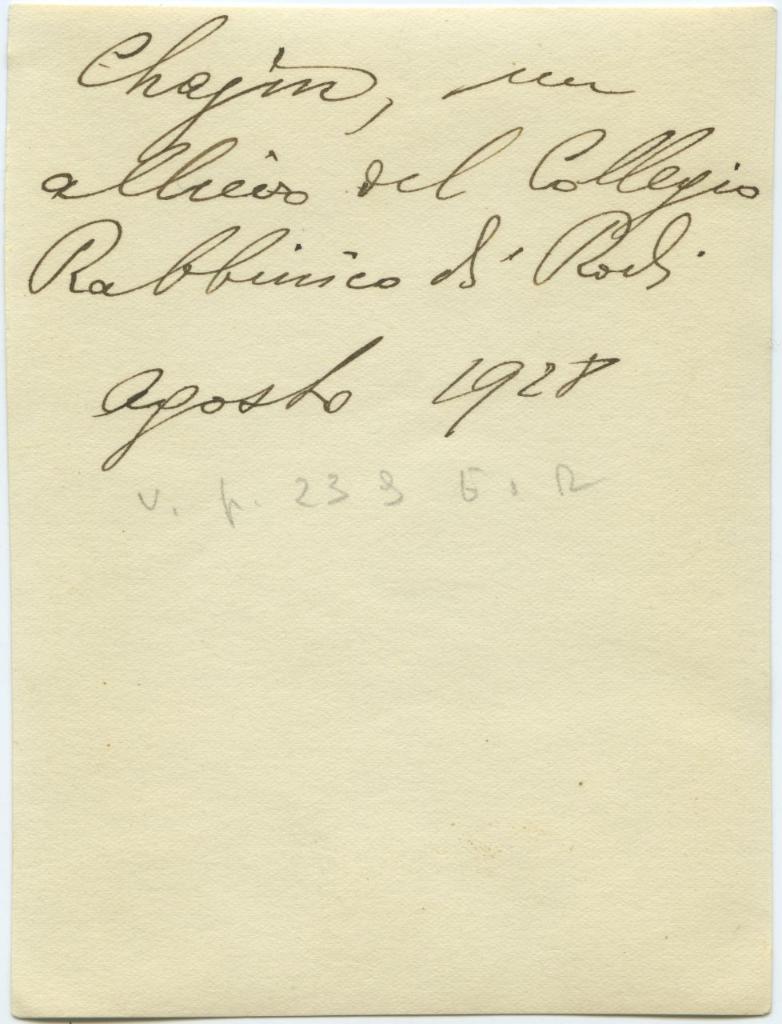 Chajim, un
allievo del Collegio
Rabbinico di Rodi
agosto 1928
v. p. 239